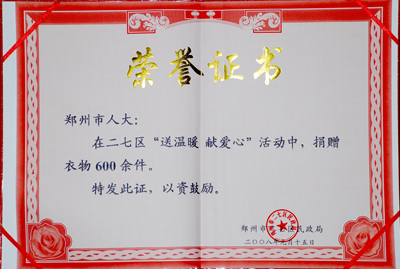 荣誉证书
郑州市人大:
在二七区“送温暖 献爱心”活动中，捐赠
衣物600余件。
特发此证，以资鼓励。
郑州市二七区民政局
二〇〇八年九月十五日